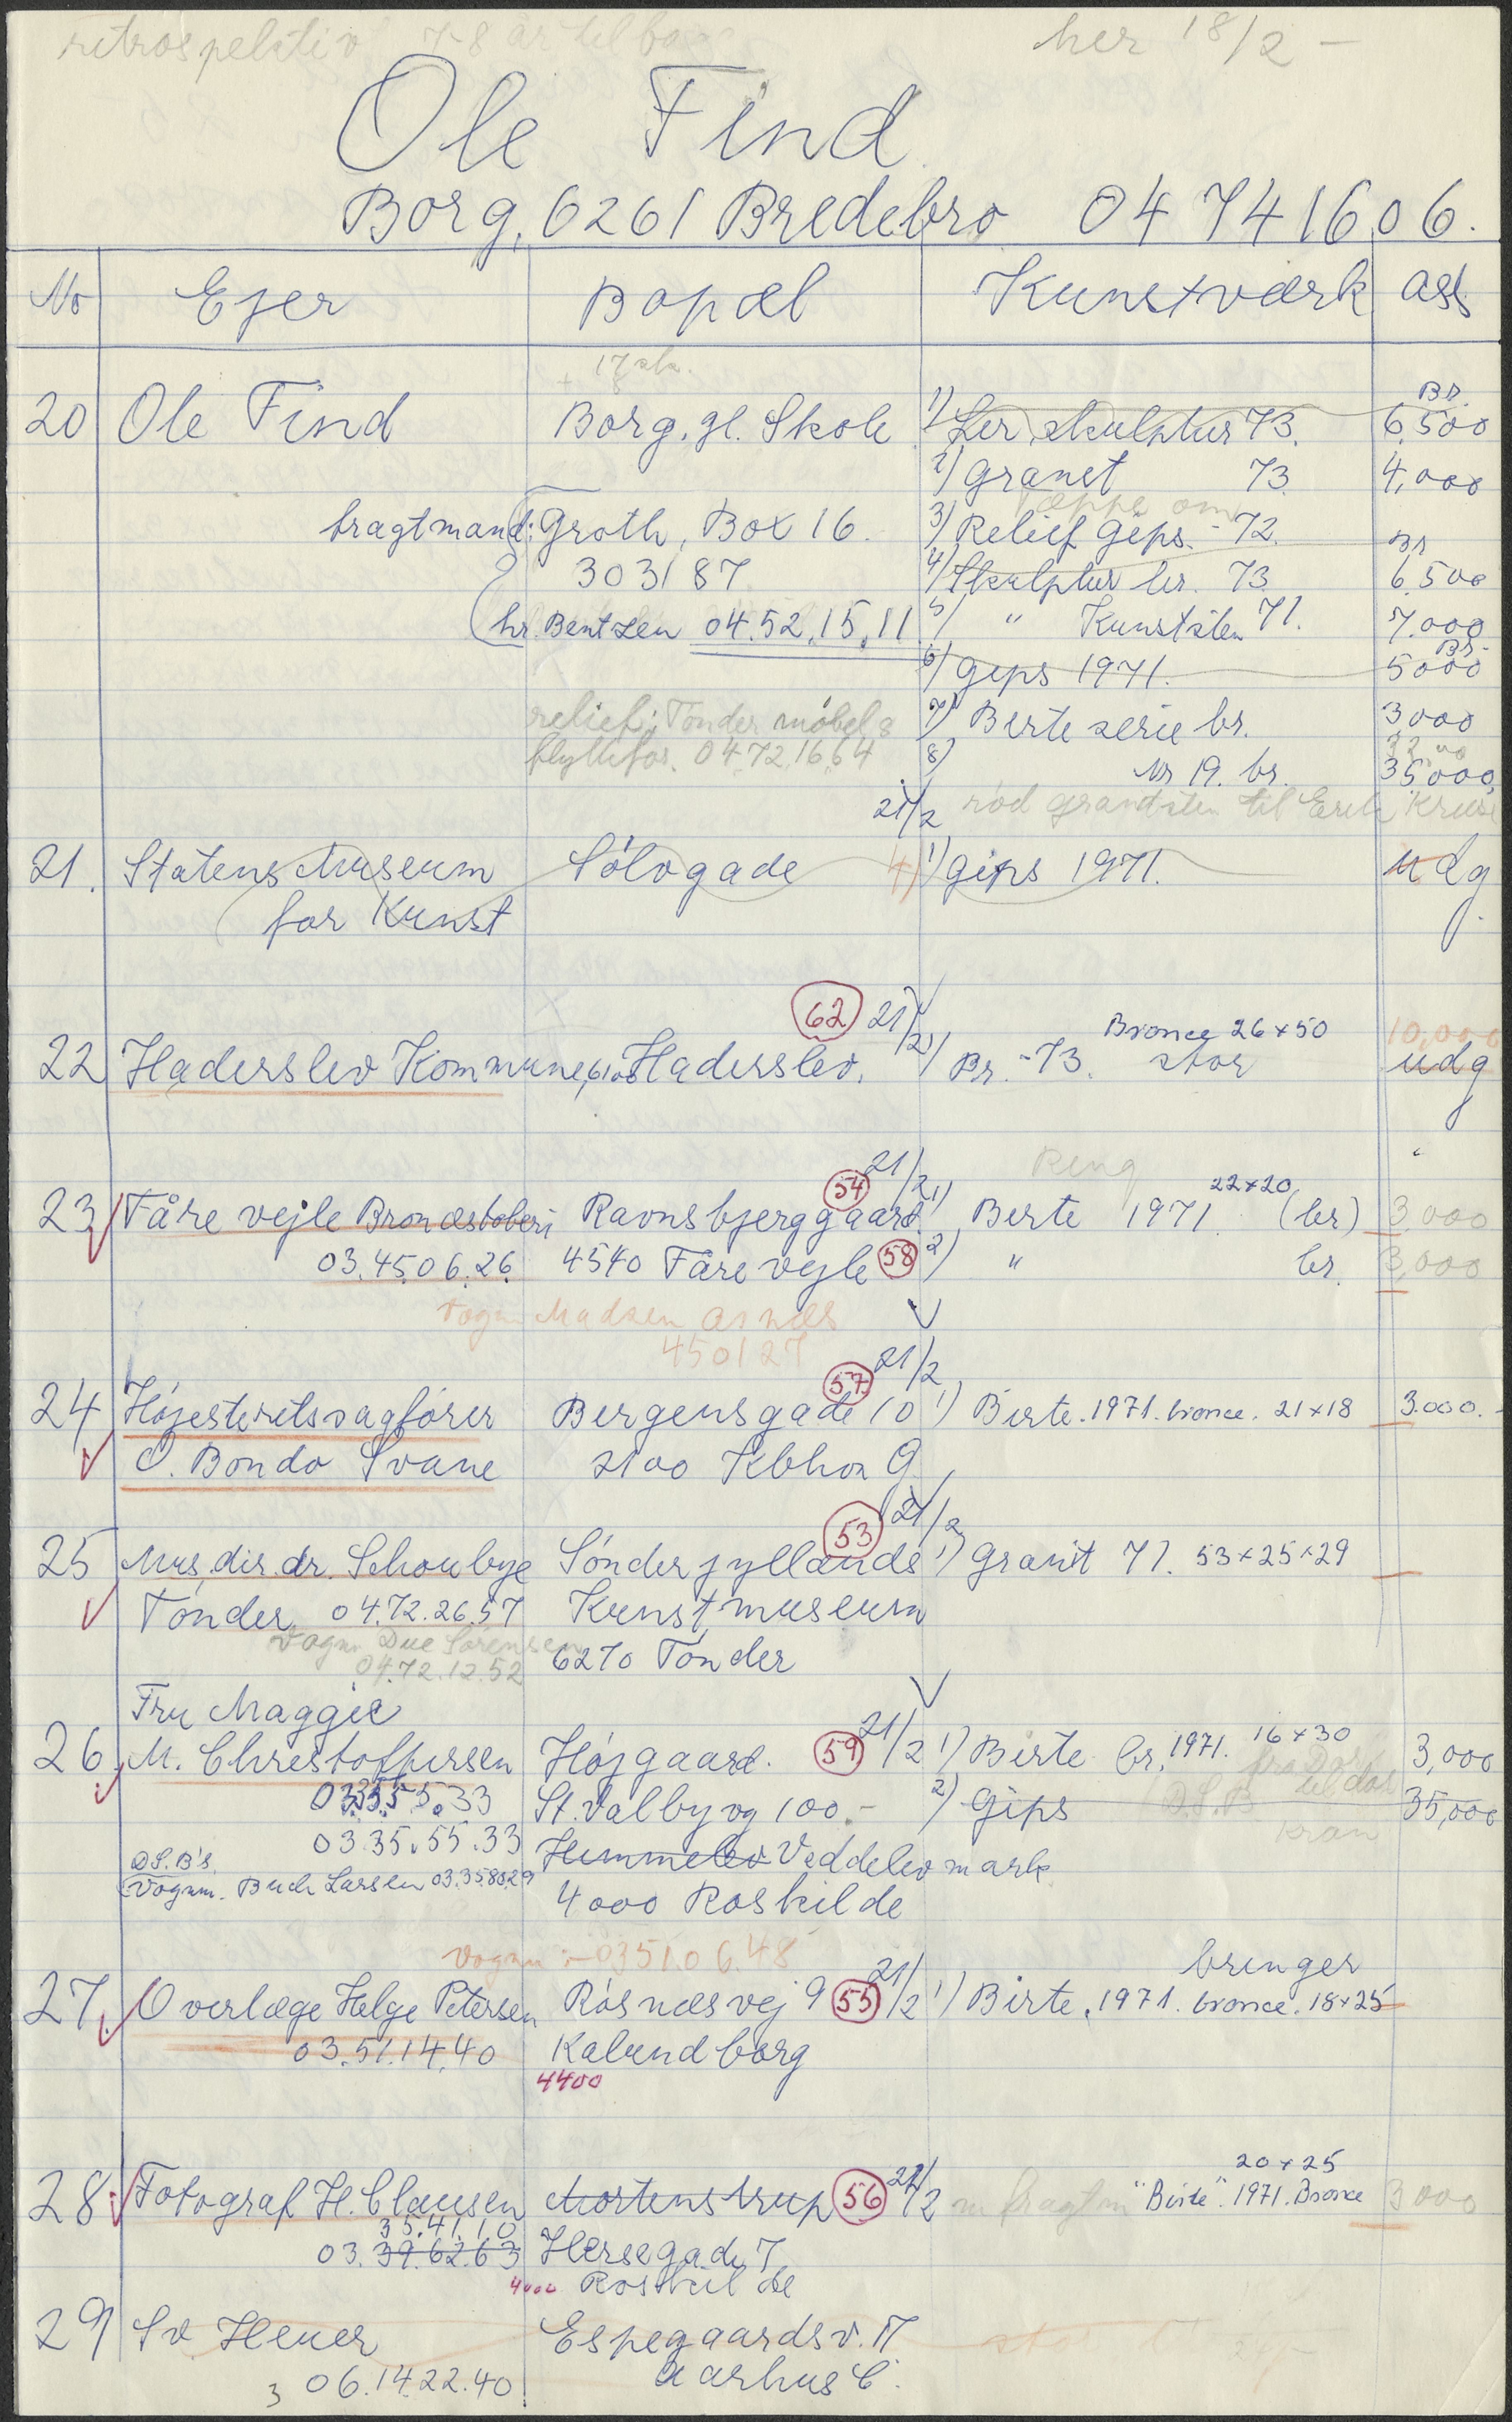 retrospektiv 7-8 år tilbage
her 18/2 -
Ole Find
Borg, 6261 Bredebro 04 74 16 06.
No Ejer Bopæl Kunstværk ass
+ 17 stk.
Br.
20 Ole Find Borg. gl. Skole 1) Ler skulptur 73. 6,500
2) granet 73. 4,000
Tæppe om
fragtmand: Groth, Box 16. 3) Relief Gips - 72.
Br
303187 4) Skulptur br. 73 6.500
hr. Bentzen 04.52.15.11 5) " Kunststen 71. 7.000
Br.
6) gips 1971. 5000
relief: Tønder møbel & 7) Birte serie br. 3000
flyttefor. 04.72.16.64 8) Nr 19. br. 35.000
21/2 rød granitsten til Erik Kruse
21. Statens Museum Sølvgade 4) 1) gips 1971. udg
for Kunst
62 21/2 Bronce 26 x 50 10,000
22 Haderslev Kommune, 6100 Haderslev. 1) Br. - 73. stor udg
Ring
54 21/2 22x20
23 Fåre vejle Broncestøberi Ravnsbjerggaard. 1) Birte 1971 (br) 3000
03.45.06.26. 4540 Fåre vejle 58 2) " br. 3,000
Vogn Madsen Asnæs
450127
57 21/2
24 Højesteretssagfører Bergensgade 10 1) Birte. 1971. bronce. 21x18 3.000.-
O. Bondo Svane 2100 Kbhvn Ø
53 21/2
25 Mus.dir. dr. Schoubye Sønderjyllands 1) Granit 71. 53x25x29
Tønder 04.72.26.57 Kunstmuseum
Vognm Due Sørensen
04.72.12.52 6270 Tønder
Fru Maggie
26 M. Christoffersen Højgaard. 59 21/2 1) Birte br. 1971. 16x30 3,000
03355533 St. Valbyvg 100.- 2) Gips D.S.B 35,000
kran
03.35.55.33 Himmelev Veddelev mark
DS.B's.
Vognm. Buch Larsen 03.358029
4000 Roskilde
Vognm :- 03510648
bringer
27. Overlæge Helge Petersen Røsnæsvej 9 55 21/2 1) Birte. 1971. bronce. 18x25
03.51.14.40 Kalundborg
4400
20x25
28. Fotograf H. Clausen Mortenstrup 56 21/2 "Birte". 1971. Bronce 3000
35.41.10
03.39.62.63 Hersegade 7
4000 Roskilde
29 Sv. Heuer Espegaardsv. 17
3 06.14.22.40 Aarhus C.